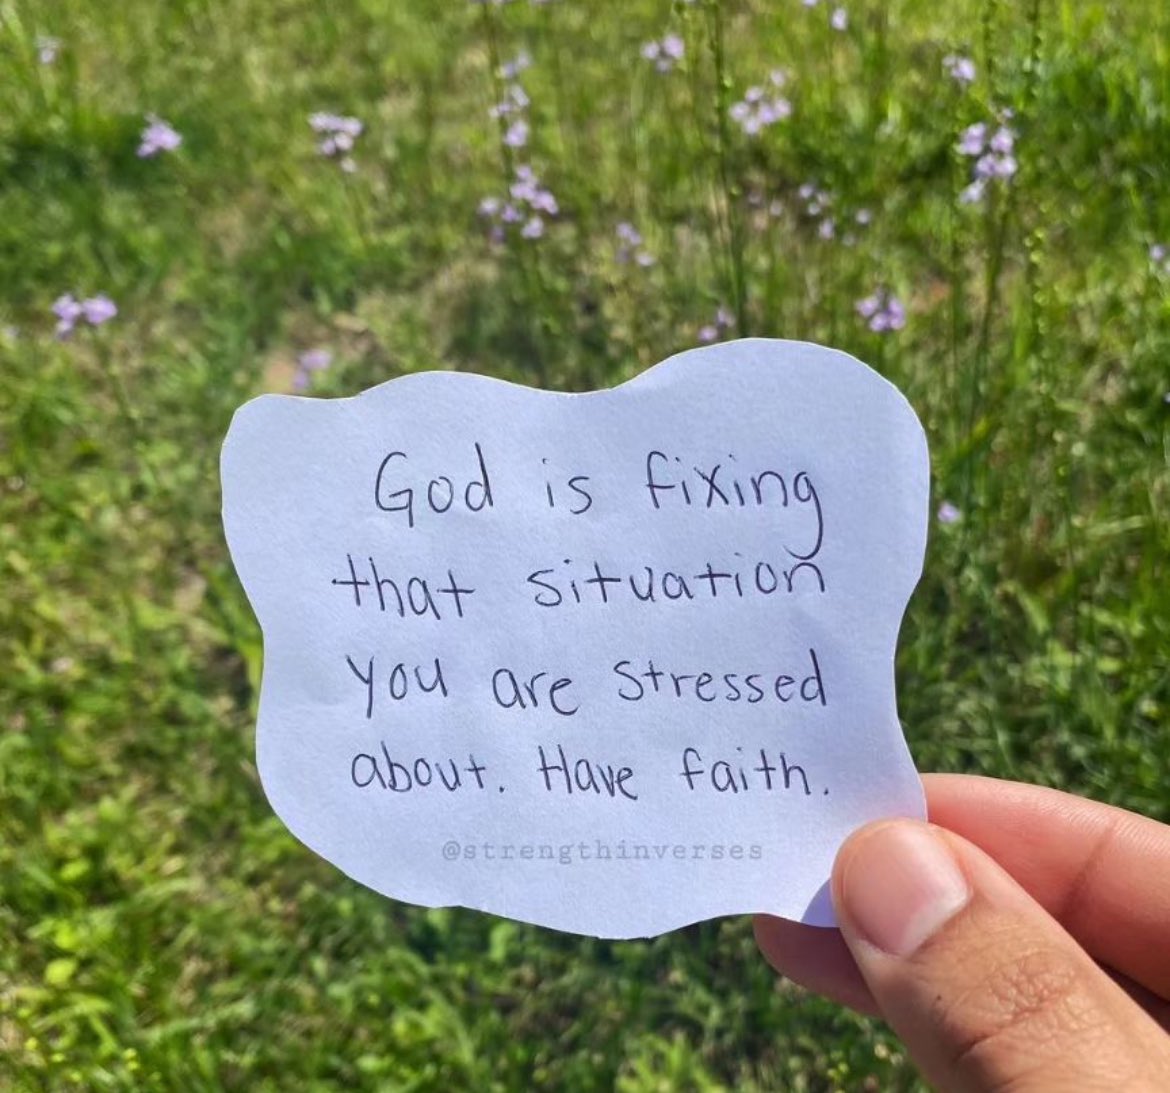 God is fixing
that situation
you are stressed
about. Have faith.
@strengthinverses